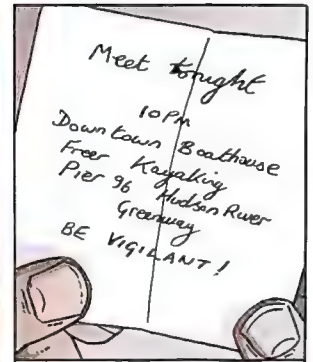 Meet tonight
10PM
Downtown Boathouse
Free Kayaking
Pier 96 Hudson River
Greenway
BE VIGILANT!